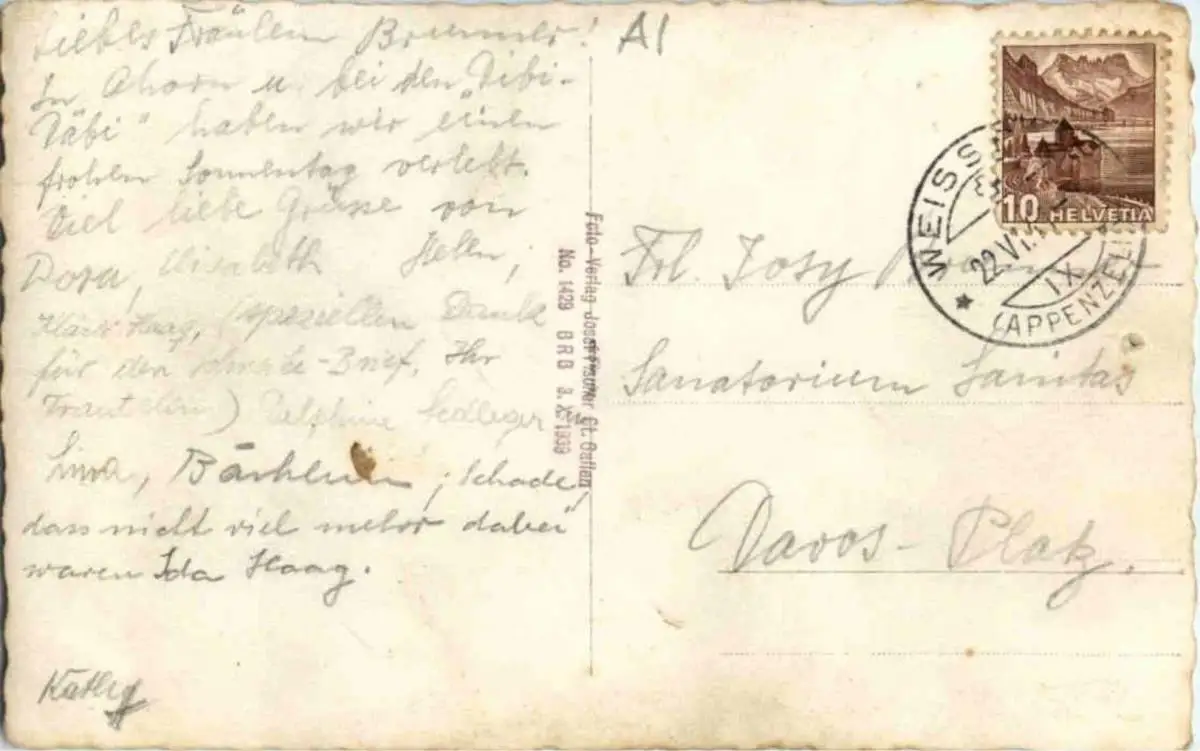 Liebes Fräulein Brunner!
In Ahorn u. bei den „Dibi-
Däbi" haben wir einen
frohen Sonnentag verlebt.
Viel liebe Grüsse von
Dora, Elisabeth Helen,
Klärli Haag, (speziellen Dank
für den -Brief. Ihr
) Delphine
Lina, ; Schade,
dass nicht viel mehr dabei
waren Ida Haag.
Käthy
Foto-Verlag Josef St. Gallen
No. 1429 BRB 3. X. 1939
A1
10 HELVETIA
WEISS
22 VI
IX
(APPENZELL
Frl. Josy
Sanatorium Sanitas
Davos-Platz.